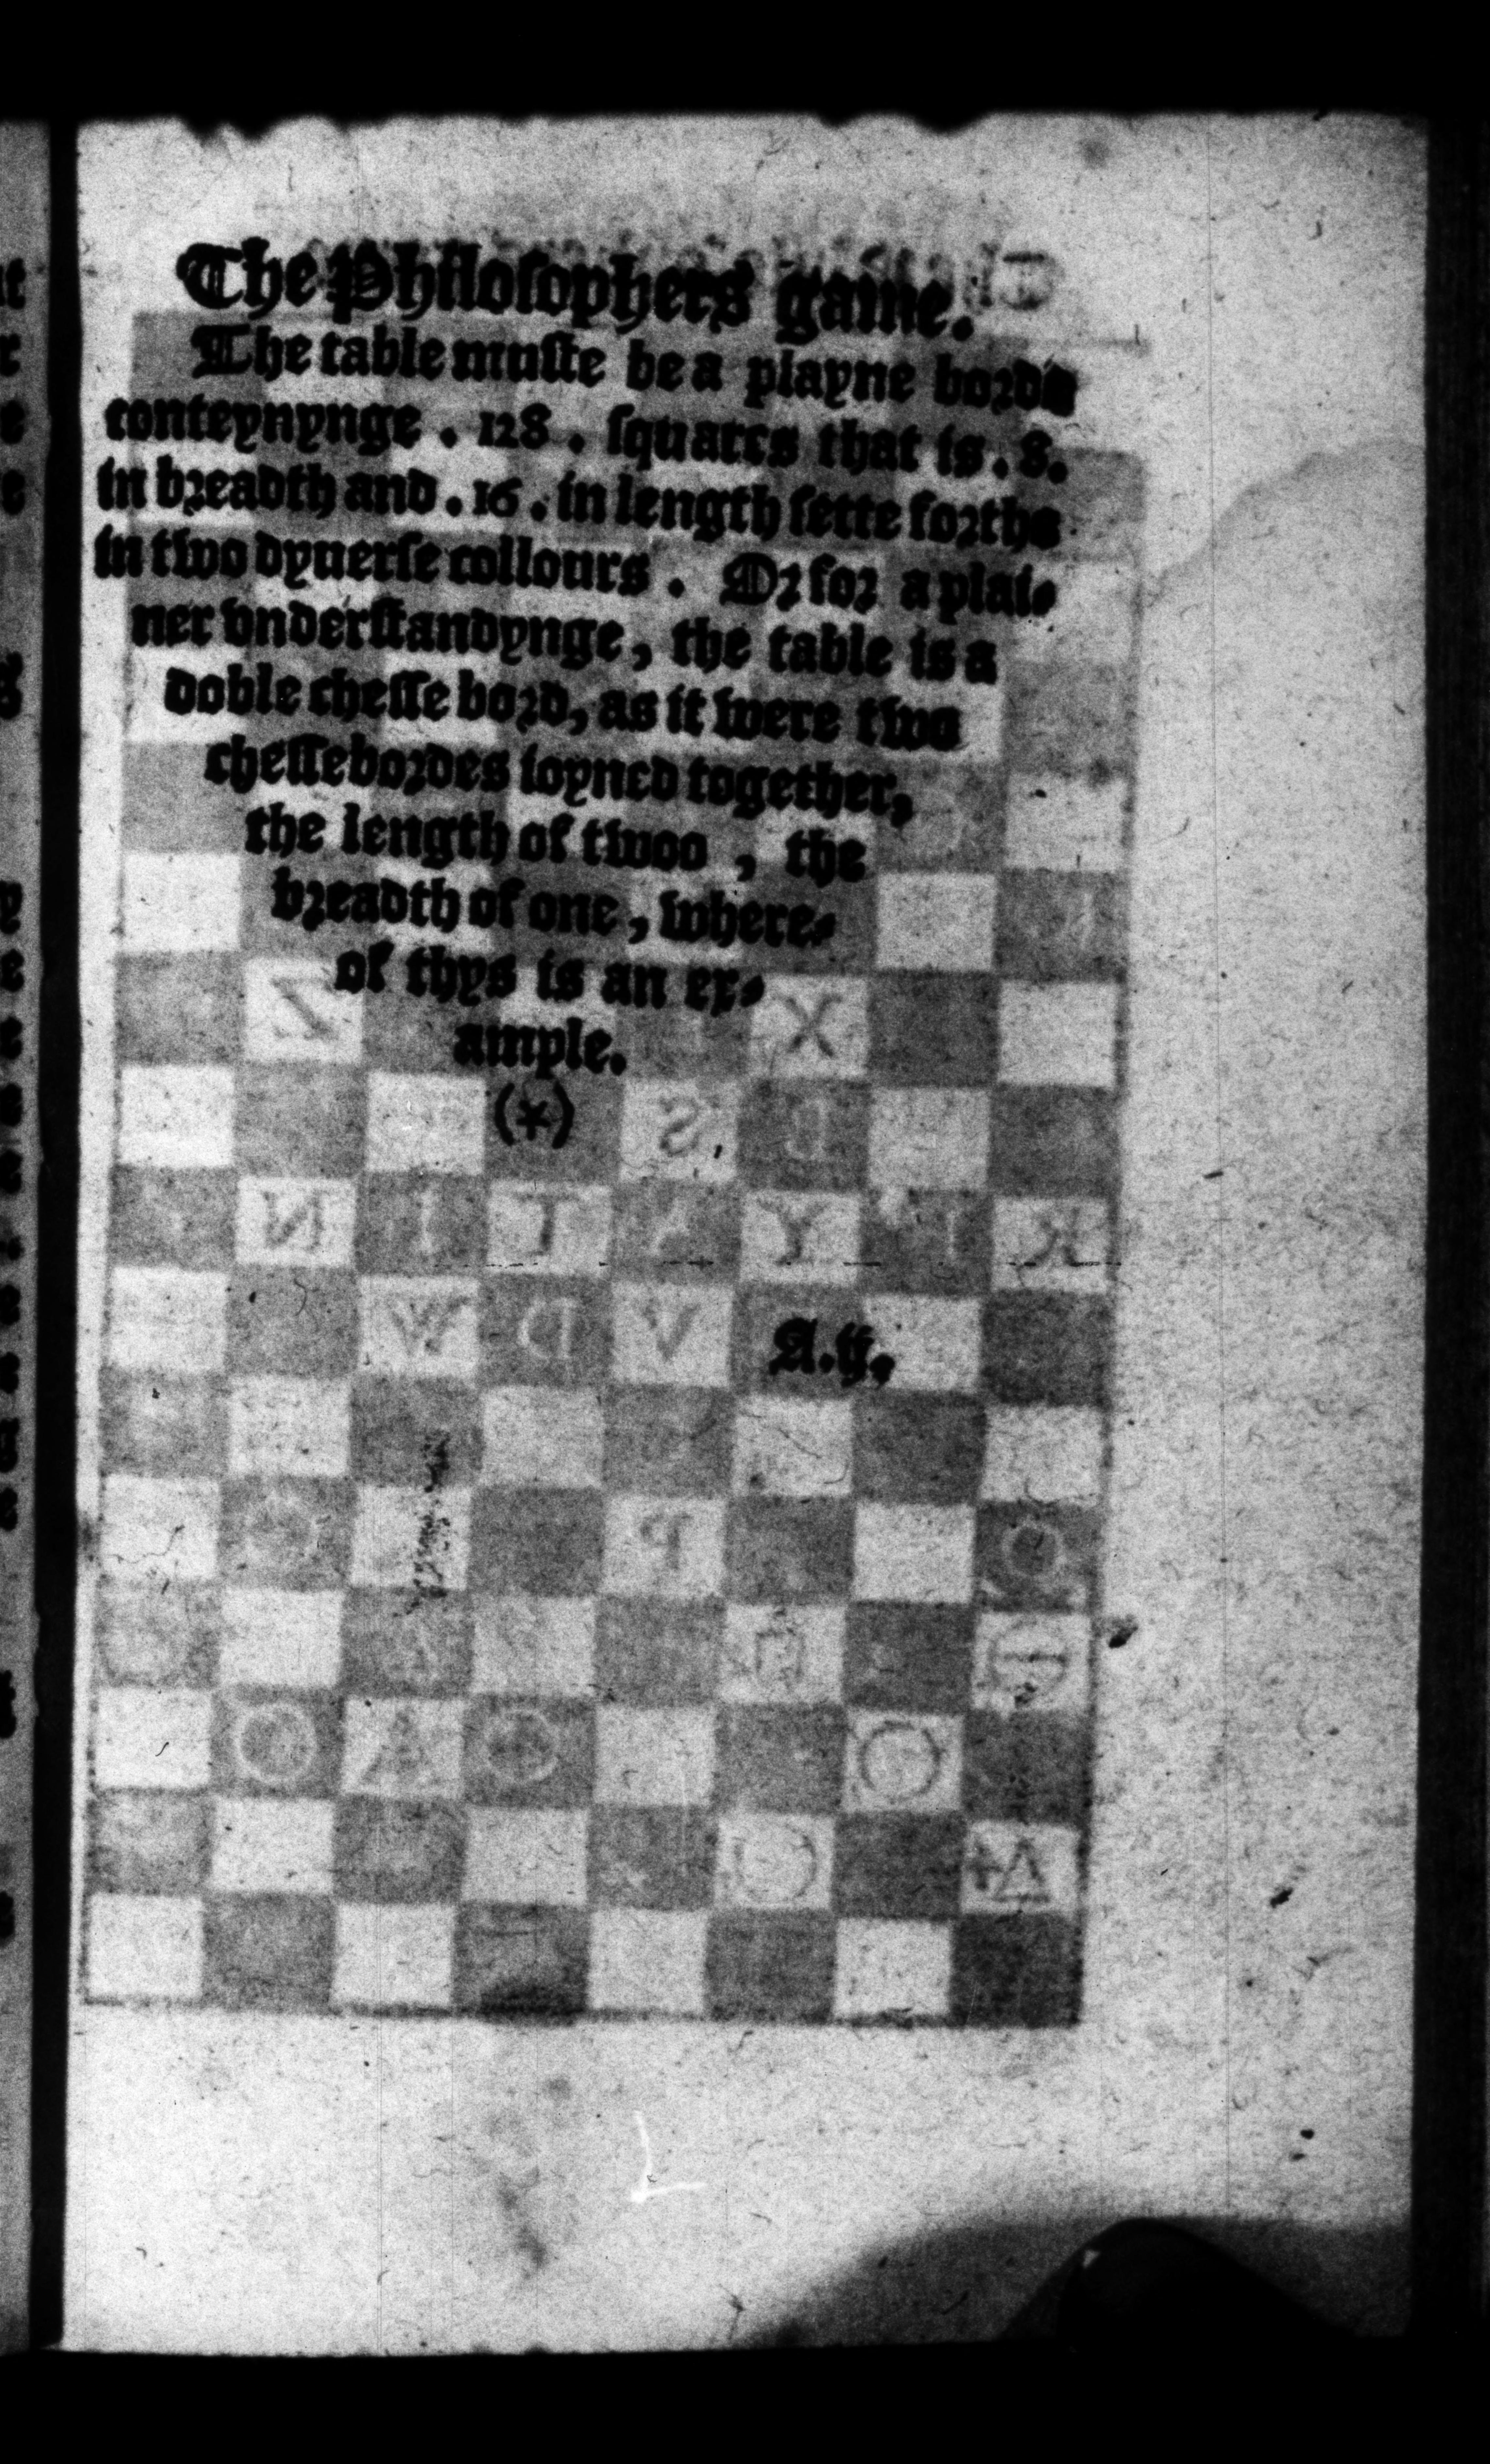 The Philosophers game.
The table muste be a playne borde
conteynynge . 128 . squares that is . 8.
in breadth and . 16 . in length sette forthe
in two dyuerse collours . Or for a plai-
ner vnderstandynge, the table is a
doble chesse bord, as it were two
chessebordes ioyned together,
the length of twoo , the
breadth of one , where-
of thys is an ex-
ample.
(*)
A.ij.